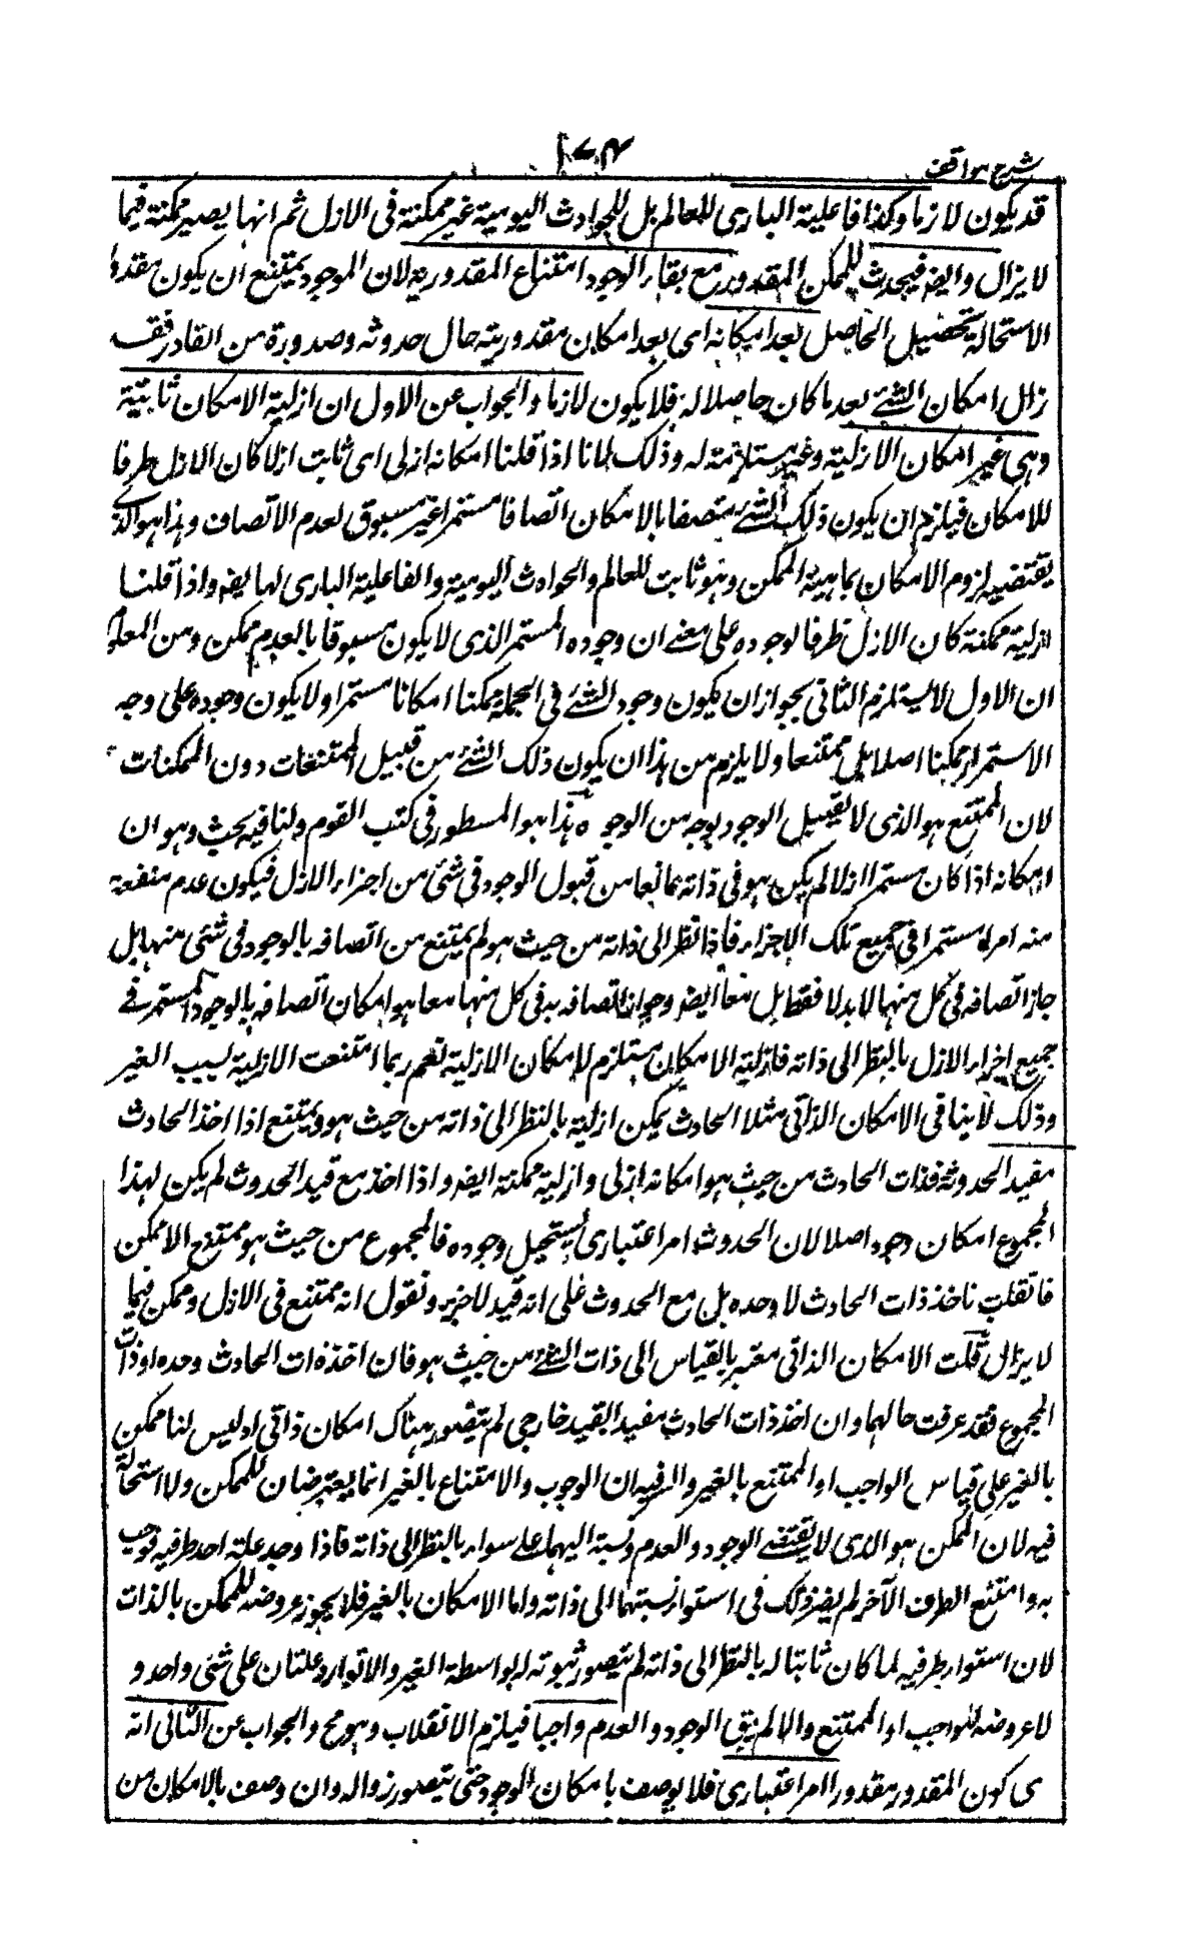 ١٧٤
شرح مواقف
قد يكون لازما وكذا فاعلية البارى للعالم بل للحوادث اليومية غير ممكنة فى الازل ثم انها يصير ممكنة فيما
لا يزال وايضه فيحدث للممكن المقدور مع بقاء الوجود امتناع المقدورية لان الموجود يمتنع ان يكون مقدورا
الاستحالة تحصيل الحاصل بعد امكانه اى بعد امكان مقدوريته حال حدوثه وصدورة من القادر فقد
زال امكان الشئ بعد ما كان حاصلا له فلا يكون لازما والجواب عن الاول ان ازلية الامكان ثابتية
وهى غير امكان الازلية وغير مستلزمة له وذلك لانا اذا قلنا امكانه ازلى اى ثابت ازلا كان الازل ظرفا
للامكان فيلزم ان يكون ذلك الشئ متصفا بالامكان اتصافا مستمرا غير مسبوق لعدم الاتصاف وهذا هو الذى
يقتضيه لزوم الامكان بماهية الممكن وهو ثابت للعالم والحوادث اليومية والفاعلية البارى لها ايضه واذا قلنا
ازلية ممكنة كان الازل ظرفا لوجوده على معنے ان وجوده المستمر الذى لا يكون مسبوقا بالعدم ممكن ومن المعلوم
ان الاول لا يستلزم الثانى بجواز ان يكون وجود الشئ فى الجملة ممكنا امكانا مستمرا ولا يكون وجوده على وجه
الاستمرار ممكنا اصلا بل ممتنعا ولا يلزم من هذا ان يكون ذلك الشئ من قبيل الممتنعات دون الممكنات
لان الممتنع هو الذى لا يقبل الوجود بوجه من الوجوه هذا هو المسطور فى كتب القوم ولنا فيه بحث وهو ان
امكانه اذا كان مستمرا ازلا لم يكن هو فى ذاته مانعا من قبول الوجود فى شئ من اجزاء الازل فيكون عدم منعه
منه امرا مستمرا فى جميع تلك الاجزاء فاذا نظر الى ذاته من حيث هو لم يمتنع من اتصافه بالوجود فى شئى منها بل
جاز اتصافه فى كل منها لا بدلا فقط بل معا ايضه وجواز اتصافه به فى كل منها معا هو امكان اتصافه بالوجود المستمر فے
جميع اجزاء الازل بالنظر الى ذاته فازلية الامكان مستلزم لامكان الازلية نعم ربما امتنعت الازلية لسبب الغير
وذلك لا ينافى الامكان الذاتى مثلا الحادث يمكن ازلية بالنظر الى ذاته من حيث هو ويمتنع اذا اخذ الحادث
مقيد الحدوثه فذات الحادث من حيث هو امكانه ازلى وازلية ممكنة ايضه واذا اخذ مع قيد الحدوث لم يكن لهذا
المجموع امكان وجود اصلا لان الحدوث امر اعتبارى يستحيل وجوده فالمجموع من حيث هو ممتنع لا ممكن
فان قلت ناخذ ذات الحادث لا وحده بل مع الحدوث على انه قيد لا جزء ونقول انه ممتنع فى الازل وممكن فيما
لا يزال قلت الامكان الذاتى معتبر بالقياس الى ذات الشئ من حيث هو فان اخذ ذات الحادث وحده او ذات
المجموع فقد عرفت حالهما وان اخذ ذات الحادث مقيد القيد خارجى لم يتصور هناك امكان ذاتى اذ ليس لنا ممكن
بالغير على قياس الواجب او الممتنع بالغير والسر فيه ان الوجوب والامتناع بالغير انما يعترضان للممكن ولا استحالة
فيه لان الممكن هو الذى لا يقتضے الوجود والعدم ونسبة اليهما على سواء بالنظر الى ذاته فاذا وجد علته احد طرفيه فوجب
به وامتنع الطرف الآخر لم يضر ذلك فى استواء نسبتهما الى ذاته واما الامكان بالغير فلا يجوز عروضه للممكن بالذات
لان استواء طرفيه لما كان ثابتا له بالنظر الى ذاته لم يتصور ثبوته له بواسطة الغير والا توارد علتان على شئى واحد و
لا عروضه للواجب او الممتنع والا لم يبق الوجود والعدم واجبا فيلزم الانقلاب وهو مح والجواب عن الثانى انه
ى كون المقدور مقدورا امر اعتبارى فلا يوصف بامكان الوجود حتى يتصور زواله وان وصف بالامكان من